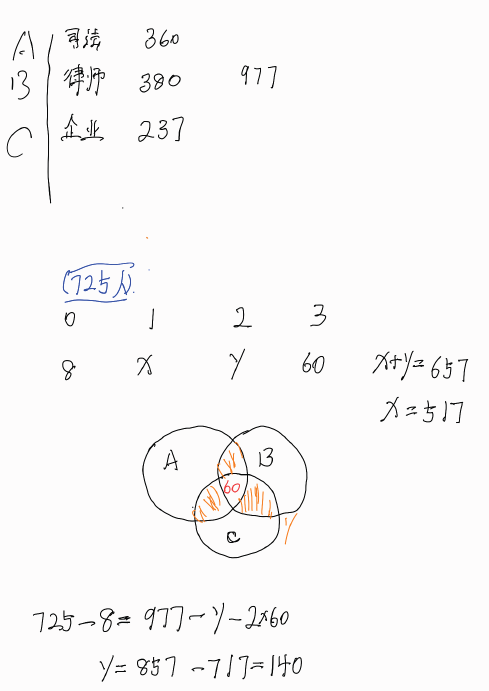 A 司法 360
B 律师 380 977
C 企业 237
(725人)
0 1 2 3
8 x y 60 x+y=657
x=517
A B
60
C y
725-8=977-y-2×60
y=857-717=140